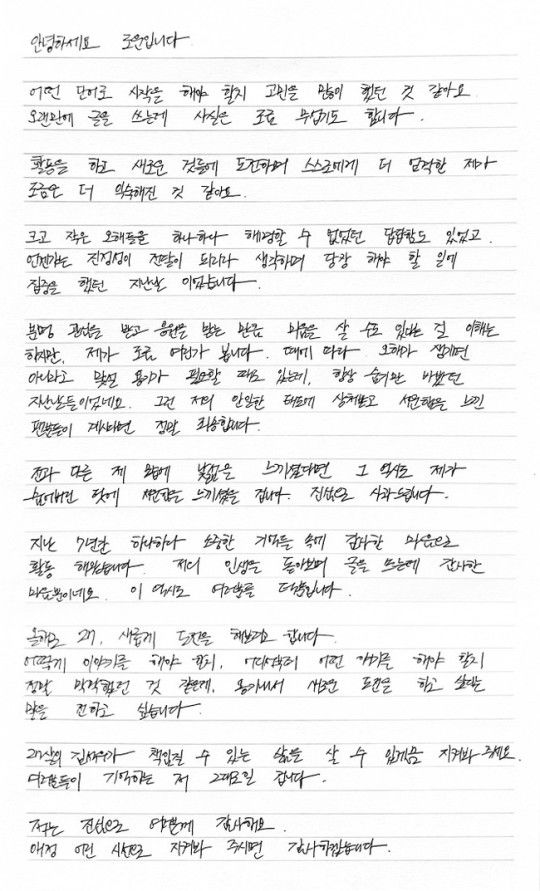 안녕하세요 로운입니다.
어떤 단어로 시작을 해야 할지 고민을 많이 했던 것 같아요
오랜만에 글을 쓰는데 사실은 조금 무섭기도 합니다.
활동을 하고 새로운 것들에 도전하며 스스로에게 더 엄격한 제가
조금은 더 익숙해진 것 같아요.
크고 작은 오해들을 하나하나 해명할 수 없었던 답답함도 있었고
언젠가는 진정성이 전달이 되리라 생각하며 당장 해야 할 일에
집중을 했던 지난날 이었습니다.
분명 관심을 받고 응원을 받는 만큼 미움을 살 수도 있다는 걸 이해는
하지만, 제가 조금 여린가 봅니다. 때에 따라 오해가 쌓이면
아니라고 맞설 용기가 필요할 때도 있는데, 항상 숨기만 바빴던
지난날들이었네요. 그런 저의 안일한 태도에 상처받고 서운함을 느낀
팬분들이 계시다면 정말 죄송합니다.
전과 다른 제 모습에 낯섦을 느끼셨다면 그 역시도 제가
숨어버린 탓에 서운함을 느끼셨을 겁니다. 진심으로 사과드립니다.
지난 7년간 하나하나 소중한 기억들 속에 감사한 마음으로
활동 해왔습니다. 저의 인생을 돌아보며 글을 쓰는데 감사한
마음뿐이네요. 이 역시도 여러분들 덕분입니다.
올해로 27, 새롭게 도전을 해보려고 합니다.
어떻게 이야기를 해야 할지, 어디서부터 어떤 얘기를 해야 할지
정말 막막했던 것 같은데, 용기내서 새로운 도전을 하고 싶다는
말을 전하고 싶습니다.
27살의 김석우가 책임질 수 있는 삶을 살 수 있게끔 지켜봐 주세요.
여러분들이 기억하는 저 그대로일 겁니다.
저는 진심으로 여러분께 감사해요.
애정 어린 시선으로 지켜봐 주시면 감사하겠습니다.